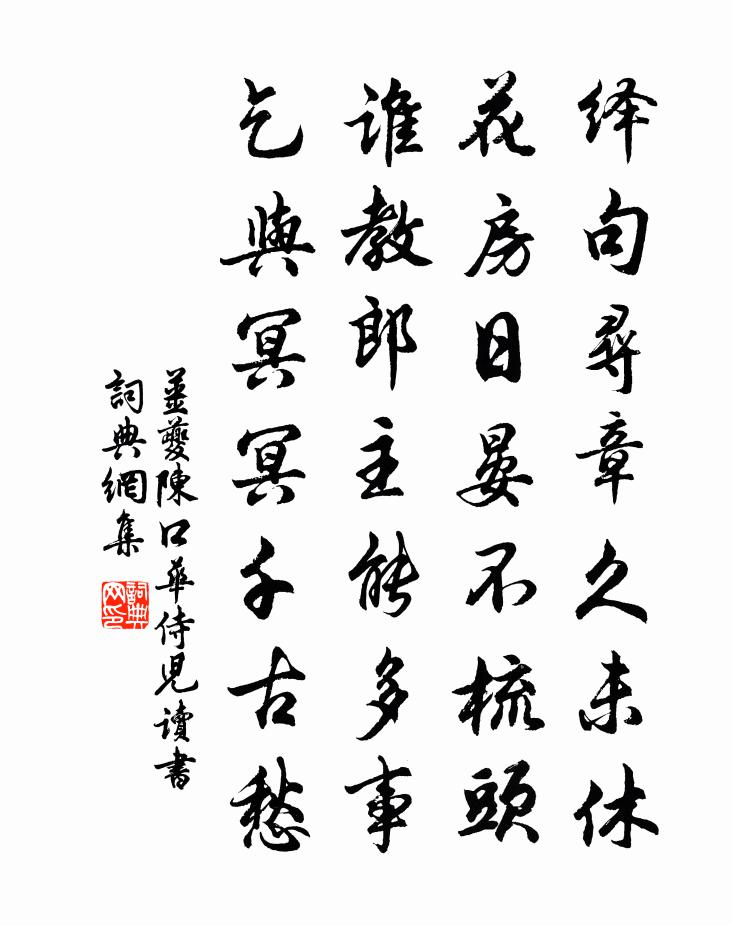 绎句尋章久未休
花房日晏不梳頭
誰教郎主能多事
乞與冥冥千古愁
姜夔陳口華侍児讀書
詞典網集
詞典网印